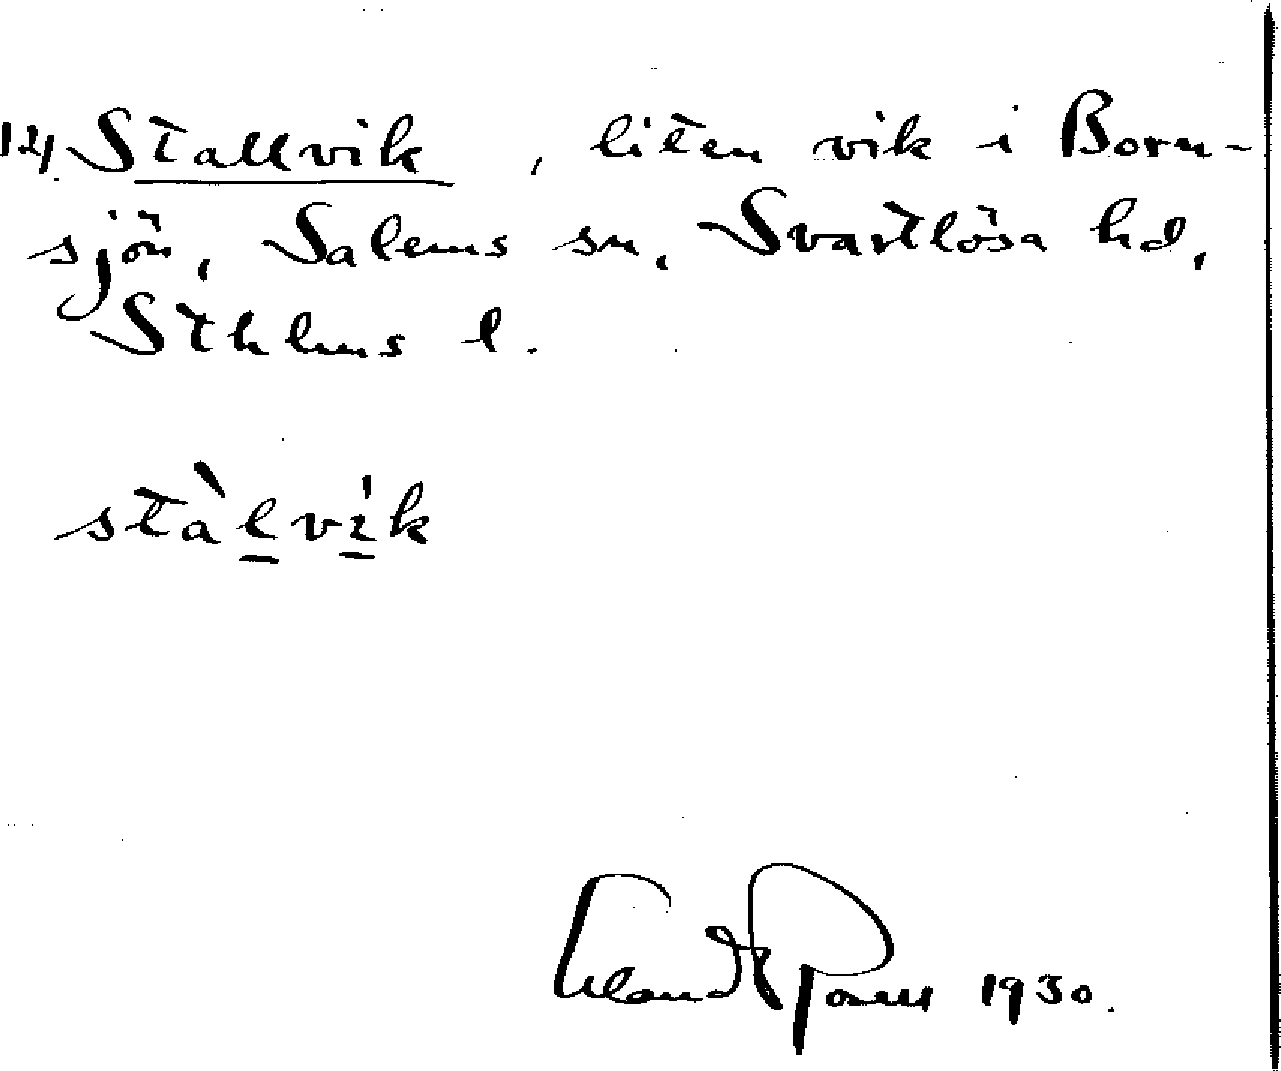 14. Stallvik, liten vik i Born-
sjön, Salems sn, Svartlösa hd,
Sthlms l.
stàlvík
Erland Rosell 1930.